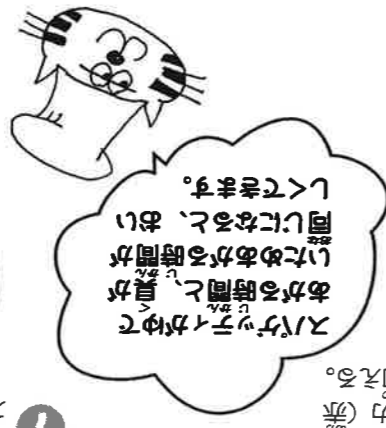 カ（赤
える。
スパゲッティがゆで
あがる時間と、具が
いためあがる時間が
同じになると、おい
しくできます。